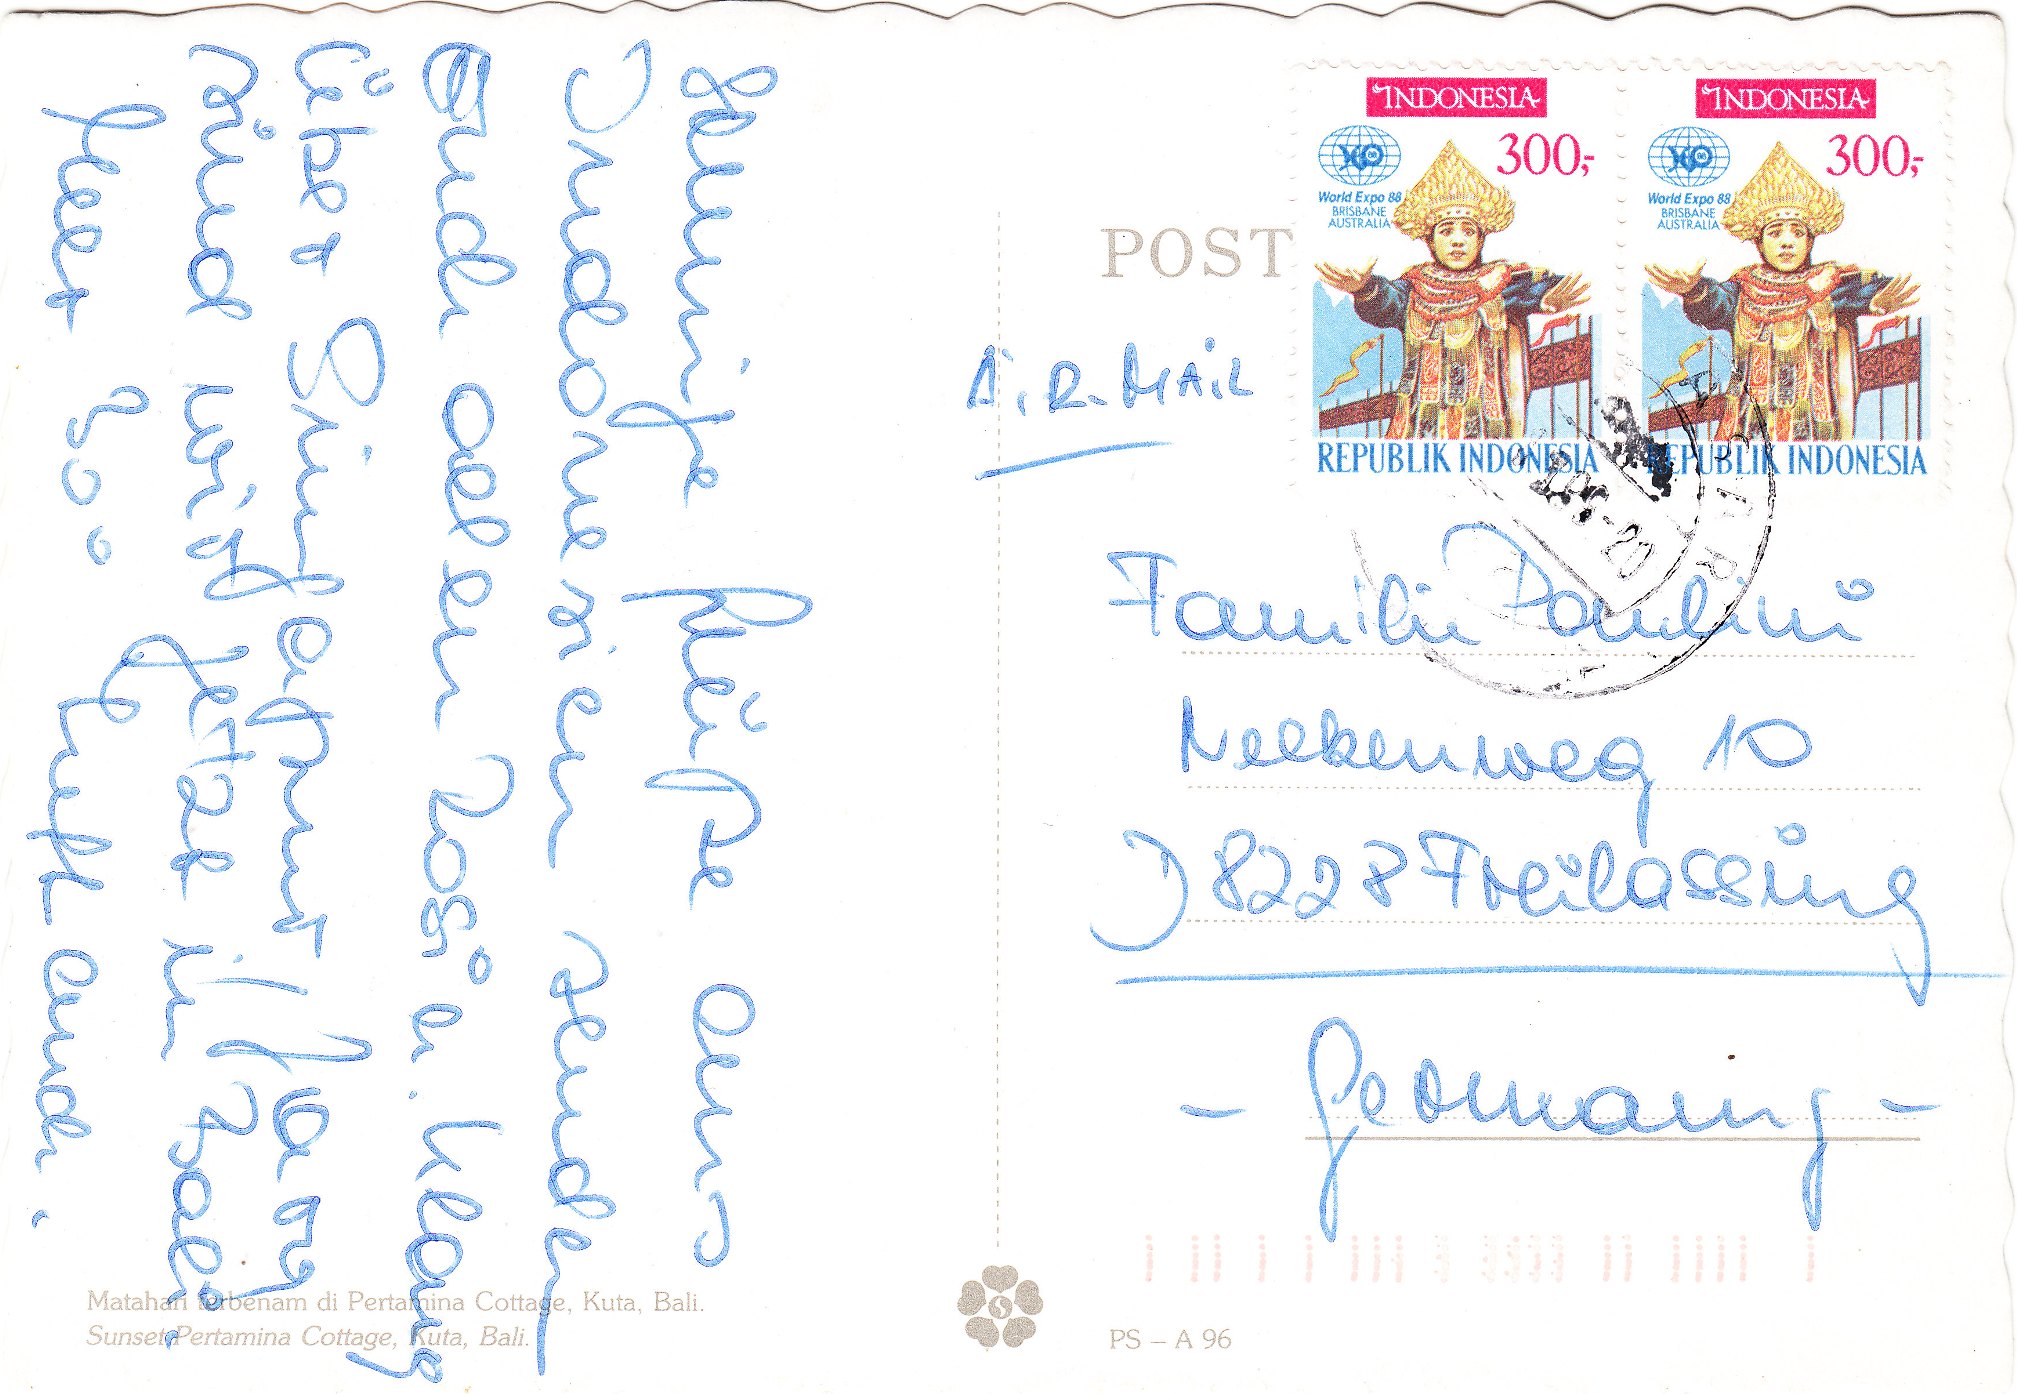 sonnige Grüße aus
Indonesien senden
Euch allen Rosi u. Klaus
über Singapur
sind wir jetzt in Bali.
Meer 30° Luft auch.
Matahari terbenam di Pertamina Cottage, Kuta, Bali.
Sunset Pertamina Cottage, Kuta, Bali.
POST
INDONESIA
300,-
World Expo 88
BRISBANE
AUSTRALIA
REPUBLIK INDONESIA
INDONESIA
300,-
World Expo 88
BRISBANE
AUSTRALIA
REPUBLIK INDONESIA
AIR-MAIL
Familie Paulini
Nelkenweg 10
D 8228 Freilassing
- Germany -
PS – A 96